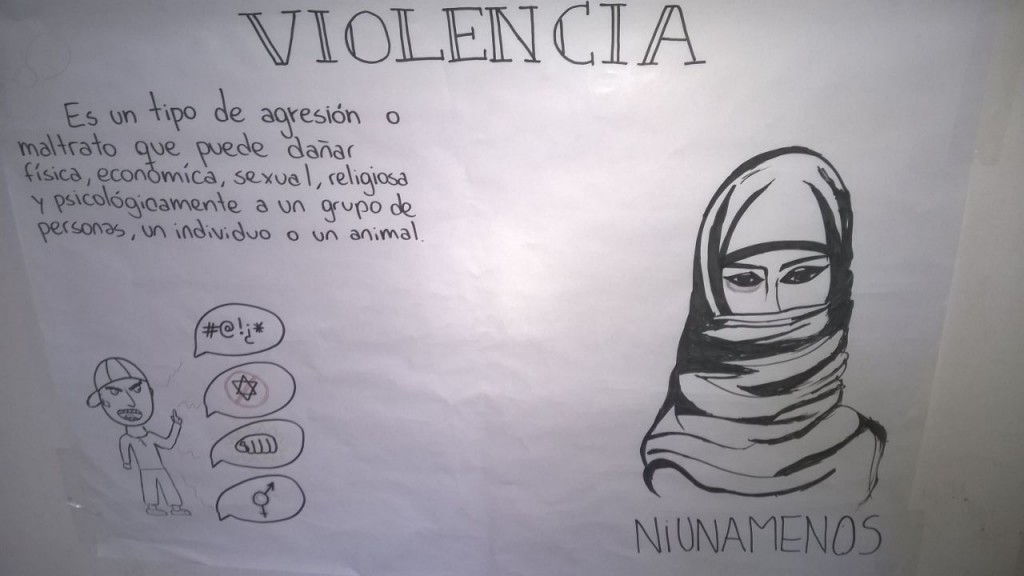 VIOLENCIA
Es un tipo de agresión o
maltrato que puede dañar
física, económica, sexual, religiosa
y psicológicamente a un grupo de
personas, un individuo o un animal.
#@!¿*
NiUNAMENOS